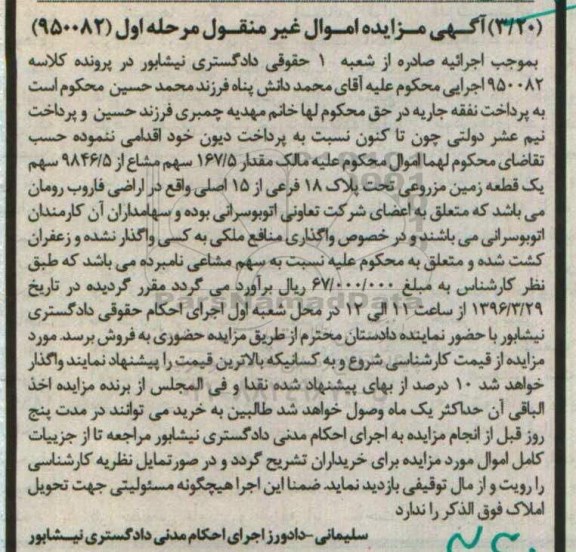 (۳/۲۰) آگهی مزایده اموال غیر منقول مرحله اول (۹۵۰۰۸۲)
بموجب اجرائیه صادره از شعبه ۱ حقوقی دادگستری نیشابور در پرونده کلاسه
۹۵۰۰۸۲ اجرایی محکوم علیه آقای محمد دانش پناه فرزند محمد حسین محکوم است
به پرداخت نفقه جاریه در حق محکوم لها خانم مهدیه چمبری فرزند حسین و پرداخت
نیم عشر دولتی چون تا کنون نسبت به پرداخت دیون خود اقدامی ننموده حسب
تقاضای محکوم لهما اموال محکوم علیه مالک مقدار ۱۶۷/۵ سهم مشاع از ۹۸۴۶/۵ سهم
یک قطعه زمین مزروعی تحت پلاک ۱۸ فرعی از ۱۵ اصلی واقع در اراضی فاروب رومان
می باشد که متعلق به اعضای شرکت تعاونی اتوبوسرانی بوده و سهامداران آن کارمندان
اتوبوسرانی می باشند و در خصوص واگذاری منافع ملکی به کسی واگذار نشده و زعفران
کشت شده و متعلق به محکوم علیه نسبت به سهم مشاعی نامبرده می باشد که طبق
نظر کارشناس به مبلغ ۶۷/۰۰۰/۰۰۰ ریال برآورد می گردد مقرر گردیده در تاریخ
۱۳۹۶/۳/۲۹ از ساعت ۱۱ الی ۱۲ در محل شعبه اول اجرای احکام حقوقی دادگستری
نیشابور با حضور نماینده دادستان محترم از طریق مزایده حضوری به فروش برسد. مورد
مزایده از قیمت کارشناسی شروع و به کسانیکه بالاترین قیمت را پیشنهاد نمایند واگذار
خواهد شد ۱۰ درصد از بهای پیشنهاد شده نقدا و فی المجلس از برنده مزایده اخذ
الباقی آن حداکثر یک ماه وصول خواهد شد طالبین به خرید می توانند در مدت پنج
روز قبل از انجام مزایده به اجرای احکام مدنی دادگستری نیشابور مراجعه تا از جزییات
کامل اموال مورد مزایده برای خریداران تشریح گردد و در صورتمایل نظریه کارشناسی
را رویت و از مال توقیفی بازدید نماید. ضمنا این اجرا هیچگونه مسئولیتی جهت تحویل
املاک فوق الذکر را ندارد
سلیمانی -دادورز اجرای احکام مدنی دادگستری نیشابور
ParsNamadData